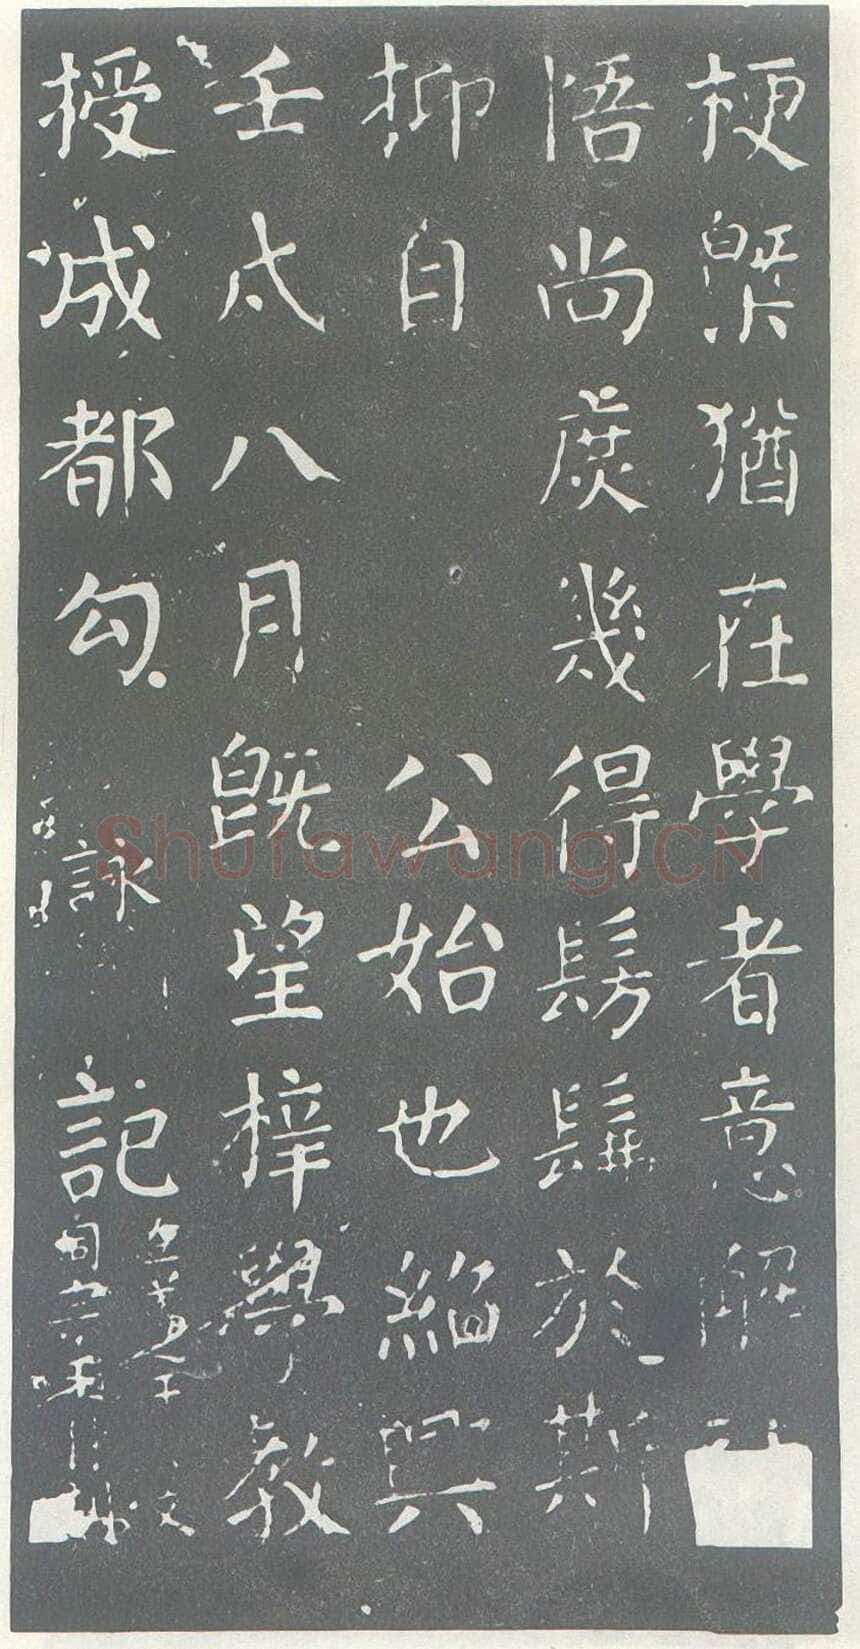 梗槩猶在學者意解
悟尚庶幾得髣髴於斯
抑自公始也紹興
壬戌八月既望梓學教
授成都勾詠記
Shufawang.CN